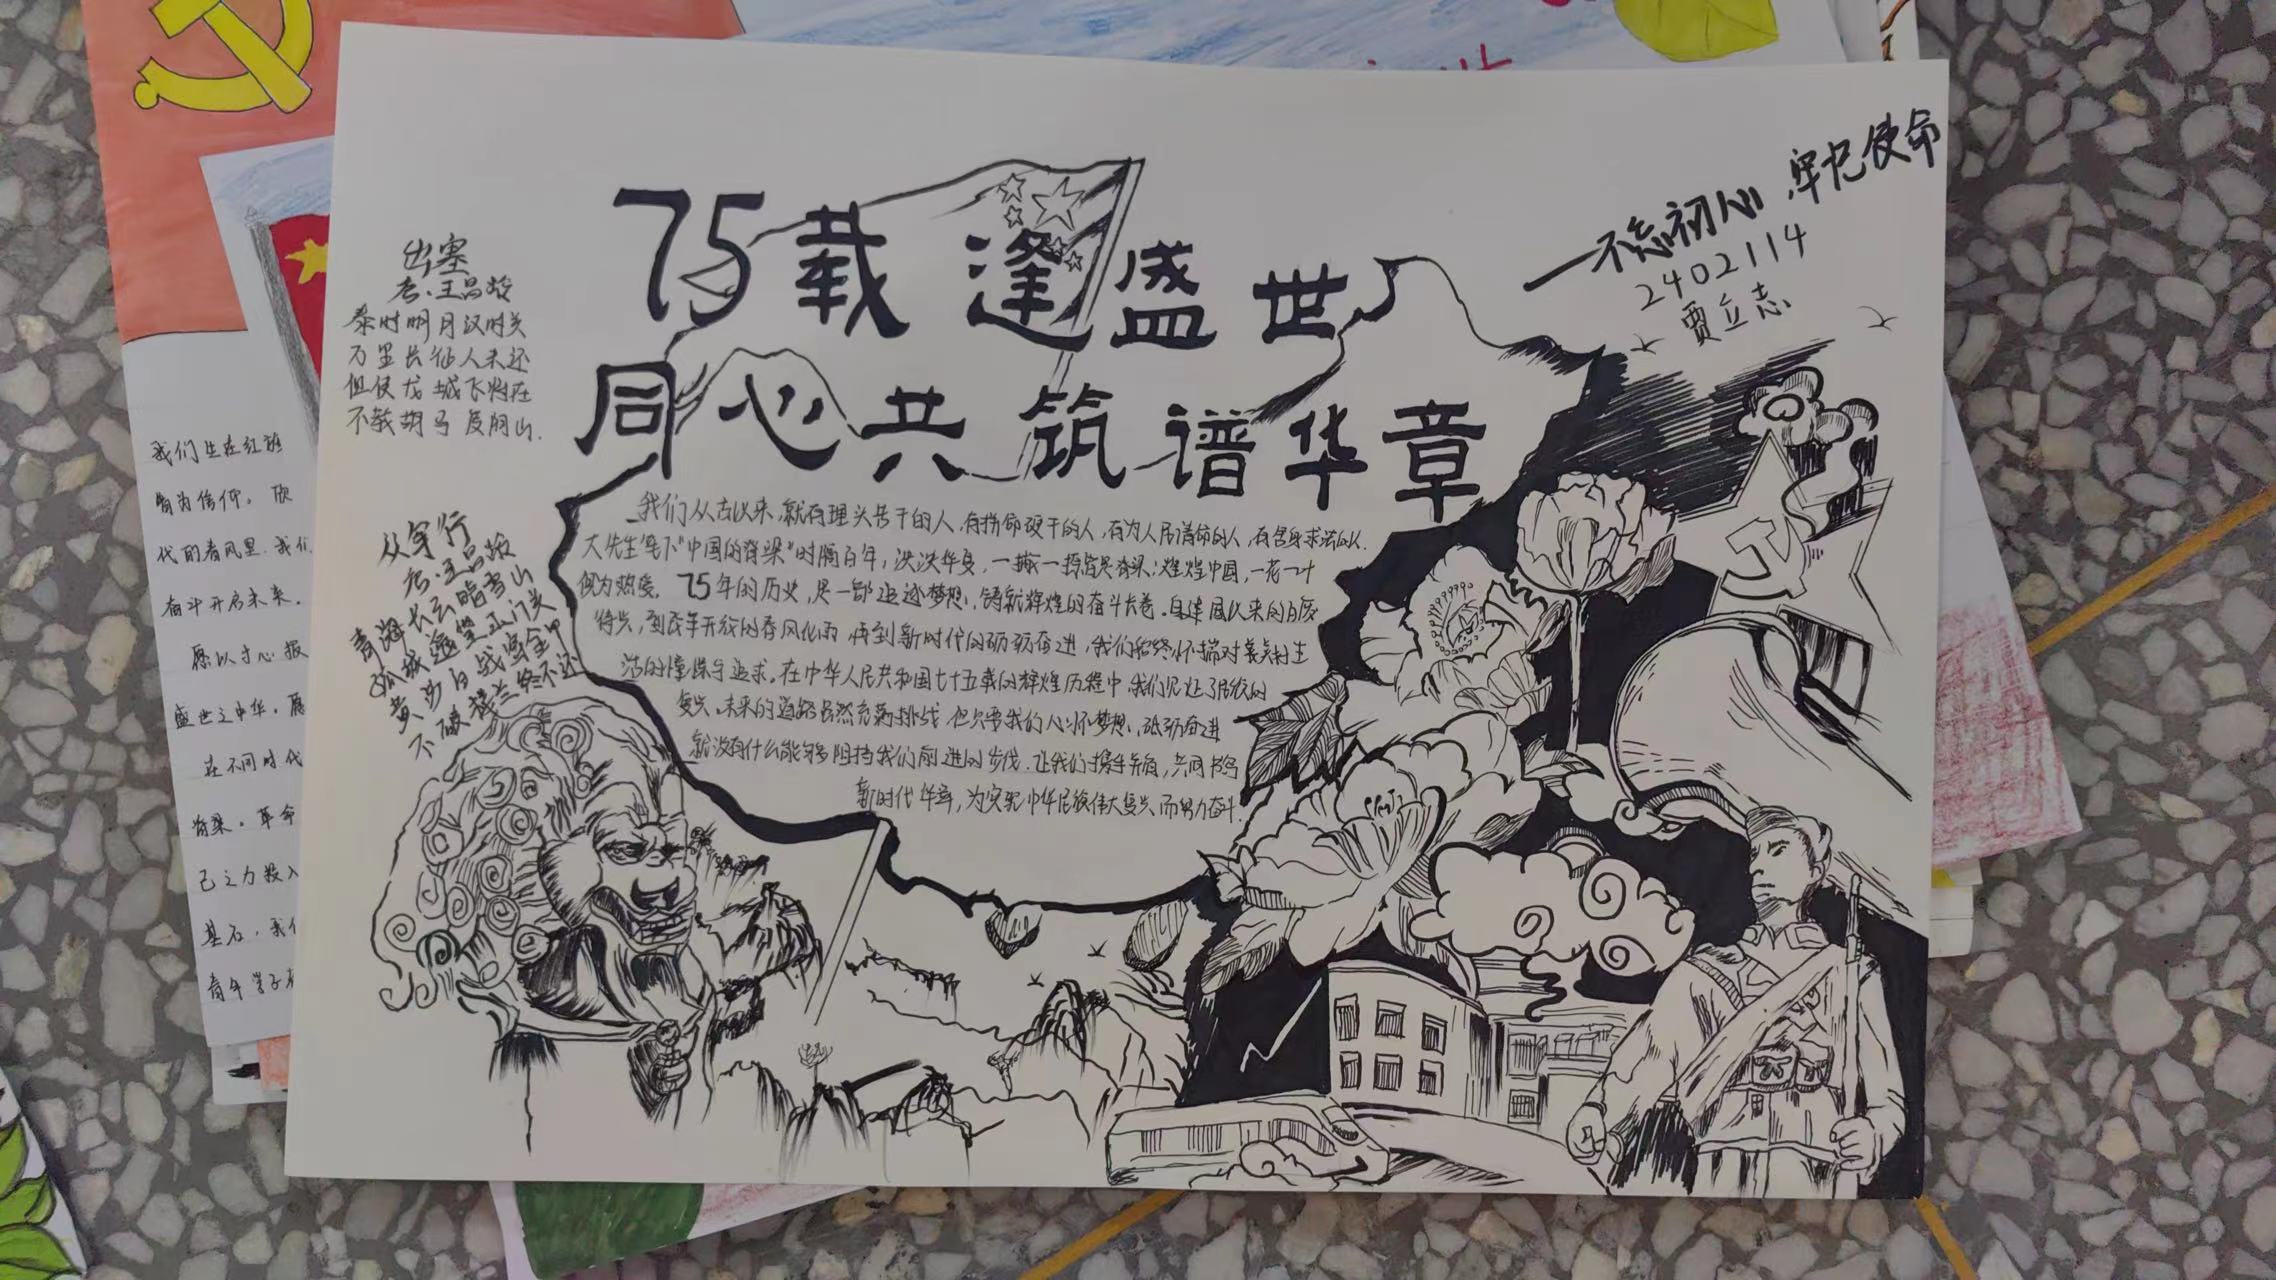 75载逢盛世
同心共筑谱华章
——不忘初心,牢记使命
2402114
贾立志
出塞
唐·王昌龄
秦时明月汉时关
万里长征人未还
但使龙城飞将在
不教胡马度阴山.
从军行
唐·王昌龄
青海长云暗雪山
孤城遥望玉门关
黄沙百战穿金甲
不破楼兰终不还
我们从古以来,就有埋头苦干的人,有拼命硬干的人,有为人民请命的人,有舍身求法的人.
大先生笔下"中国的脊梁"时隔百年,泱泱华夏,一撇一捺皆是脊梁;煌煌中国,一花一叶
俱为热爱. 75年的历史,是一部追逐梦想、铸就辉煌的奋斗长卷.自建国以来的百废
待兴,到改革开放的春风化雨 再到新时代的砥砺奋进,我们始终怀揣对美好生
活的憧憬与追求.在中华人民共和国七十五载的辉煌历程中 我们见证了民族的
复兴.未来的道路虽然充满挑战 但只要我们心怀梦想、砥砺奋进
就没有什么能够阻挡我们前进的步伐.让我们携手并肩,共同书写
新时代华章,为实现中华民族伟大复兴而努力奋斗.
我们生在红旗
皆为信仰。欣
代的春风里.我们
奋斗开启未来.
愿以寸心报
盛世之中华。愿
在不同时代
脊梁。革命
己之力投入
基石,我们
青年学子